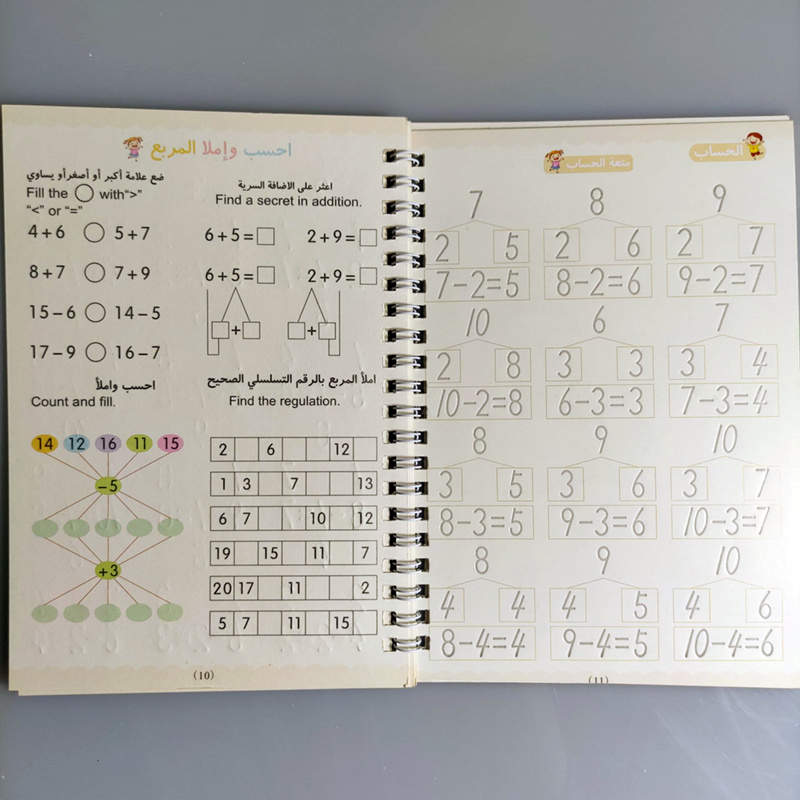 احسب وإملا المربع
ضع علامة أكبر أو أصغرأو يساوي
Fill the ○ with“>”
“<” or “=”
4+6 ○ 5+7
8+7 ○ 7+9
15−6 ○ 14−5
17−9 ○ 16−7
اعثر على الاضافة السرية
Find a secret in addition.
6+5=□ 2+9=□
6+5=□ 2+9=□
□+□ □+□
احسب واملأ
Count and fill.
14 12 16 11 15
−5
+3
املأ المربع بالرقم التسلسلي الصحيح
Find the regulation.
2 6 12
1 3 7 13
6 7 10 12
19 15 11 7
20 17 11 2
5 7 11 15
(10)
الحساب
متعة الحساب
7 8 9
2 5 2 6 2 7
7−2=5 8−2=6 9−2=7
10 6 7
2 8 3 3 3 4
10−2=8 6−3=3 7−3=4
8 9 10
3 5 3 6 3 7
8−3=5 9−3=6 10−3=7
8 9 10
4 4 4 5 4 6
8−4=4 9−4=5 10−4=6
(11)